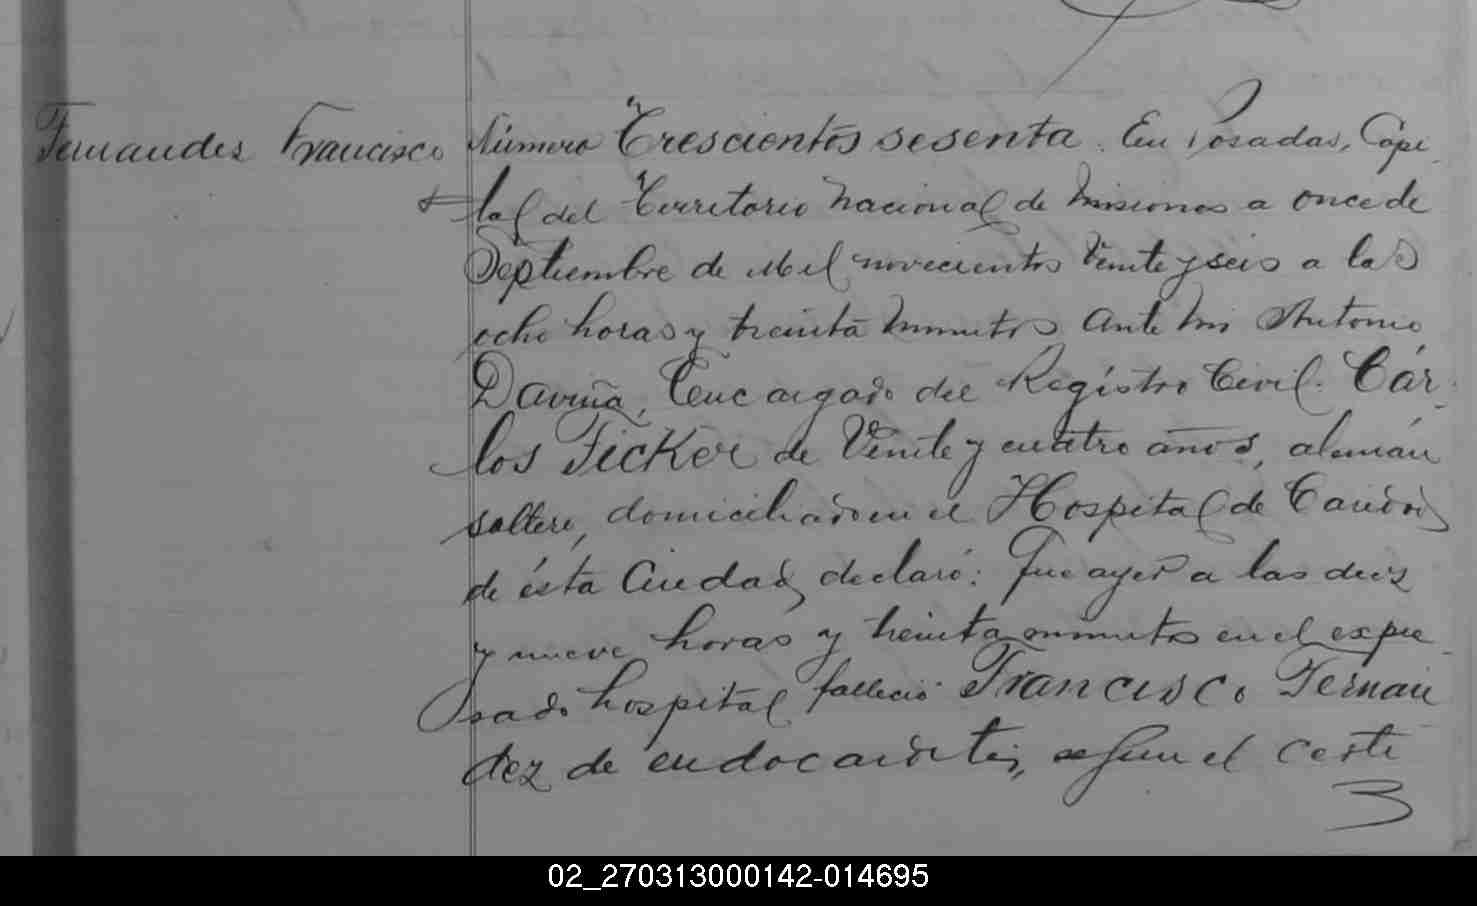 Fernandes Francisco
Número Trescientos sesenta. En Posadas, Capi
tal del Territorio Nacional de Misiones a once de
Septiembre de Mil novecientos Veinte y seis a las
ocho horas y treinta minutos ante mi Antonio
Daviña, Encargado del Registro Civil. Cár-
los Ficker de Veinte y cuatro años, alemán
soltero, domiciliado en el Hospital de Caridad
de ésta Ciudad, declaró: Que ayer a las diez
y nueve horas y treinta minutos en el expre-
sado hospital falleció Francisco Fernan
dez de endocarditis, segun el certi
02_270313000142-014695